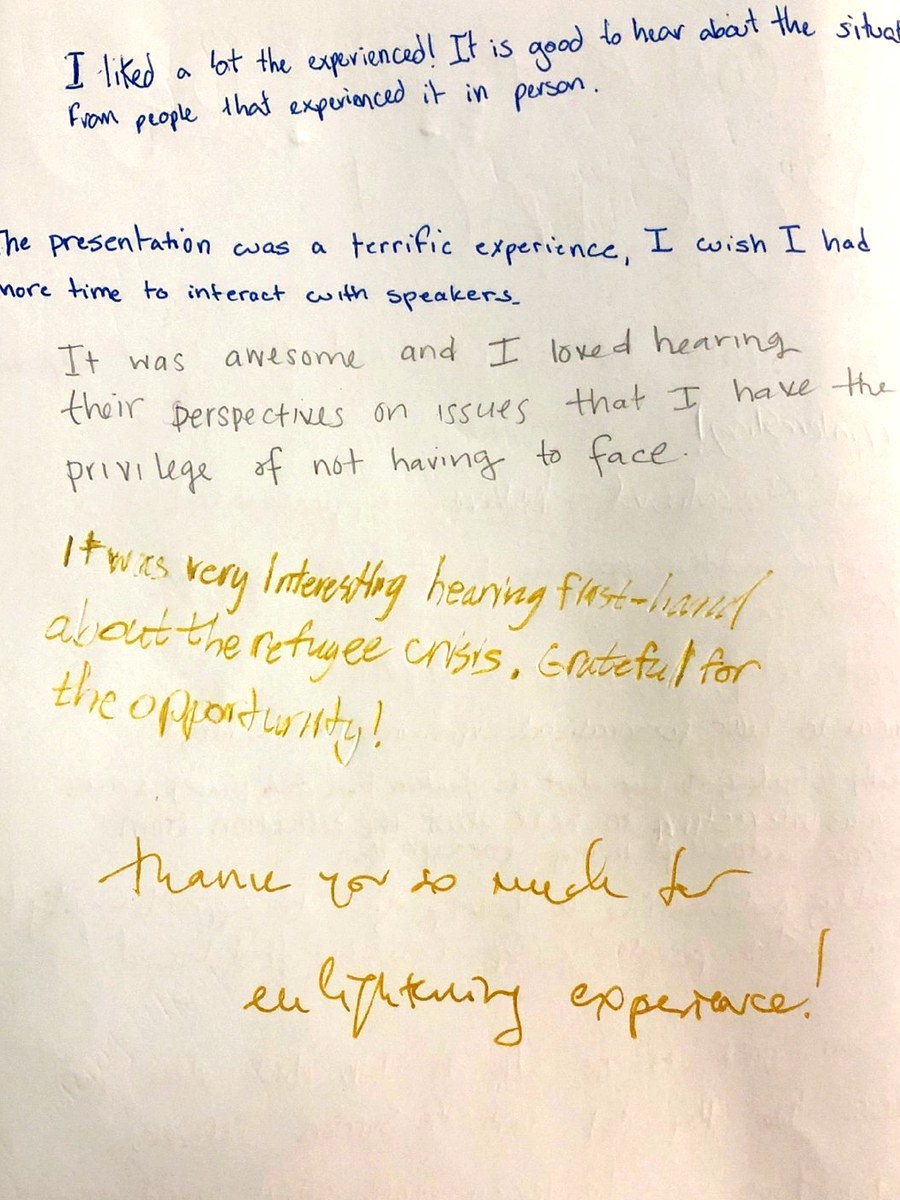 I liked a lot the experienced! It is good to hear about the situat
from people that experienced it in person.
The presentation was a terrific experience, I wish I had
more time to interact with speakers.
It was awesome and I loved hearing
their perspectives on issues that I have the
privilege of not having to face.
It was very interesting hearing first-hand
about the refugee crisis. Grateful for
the opportunity!
thank you so much for
enlightening experience!